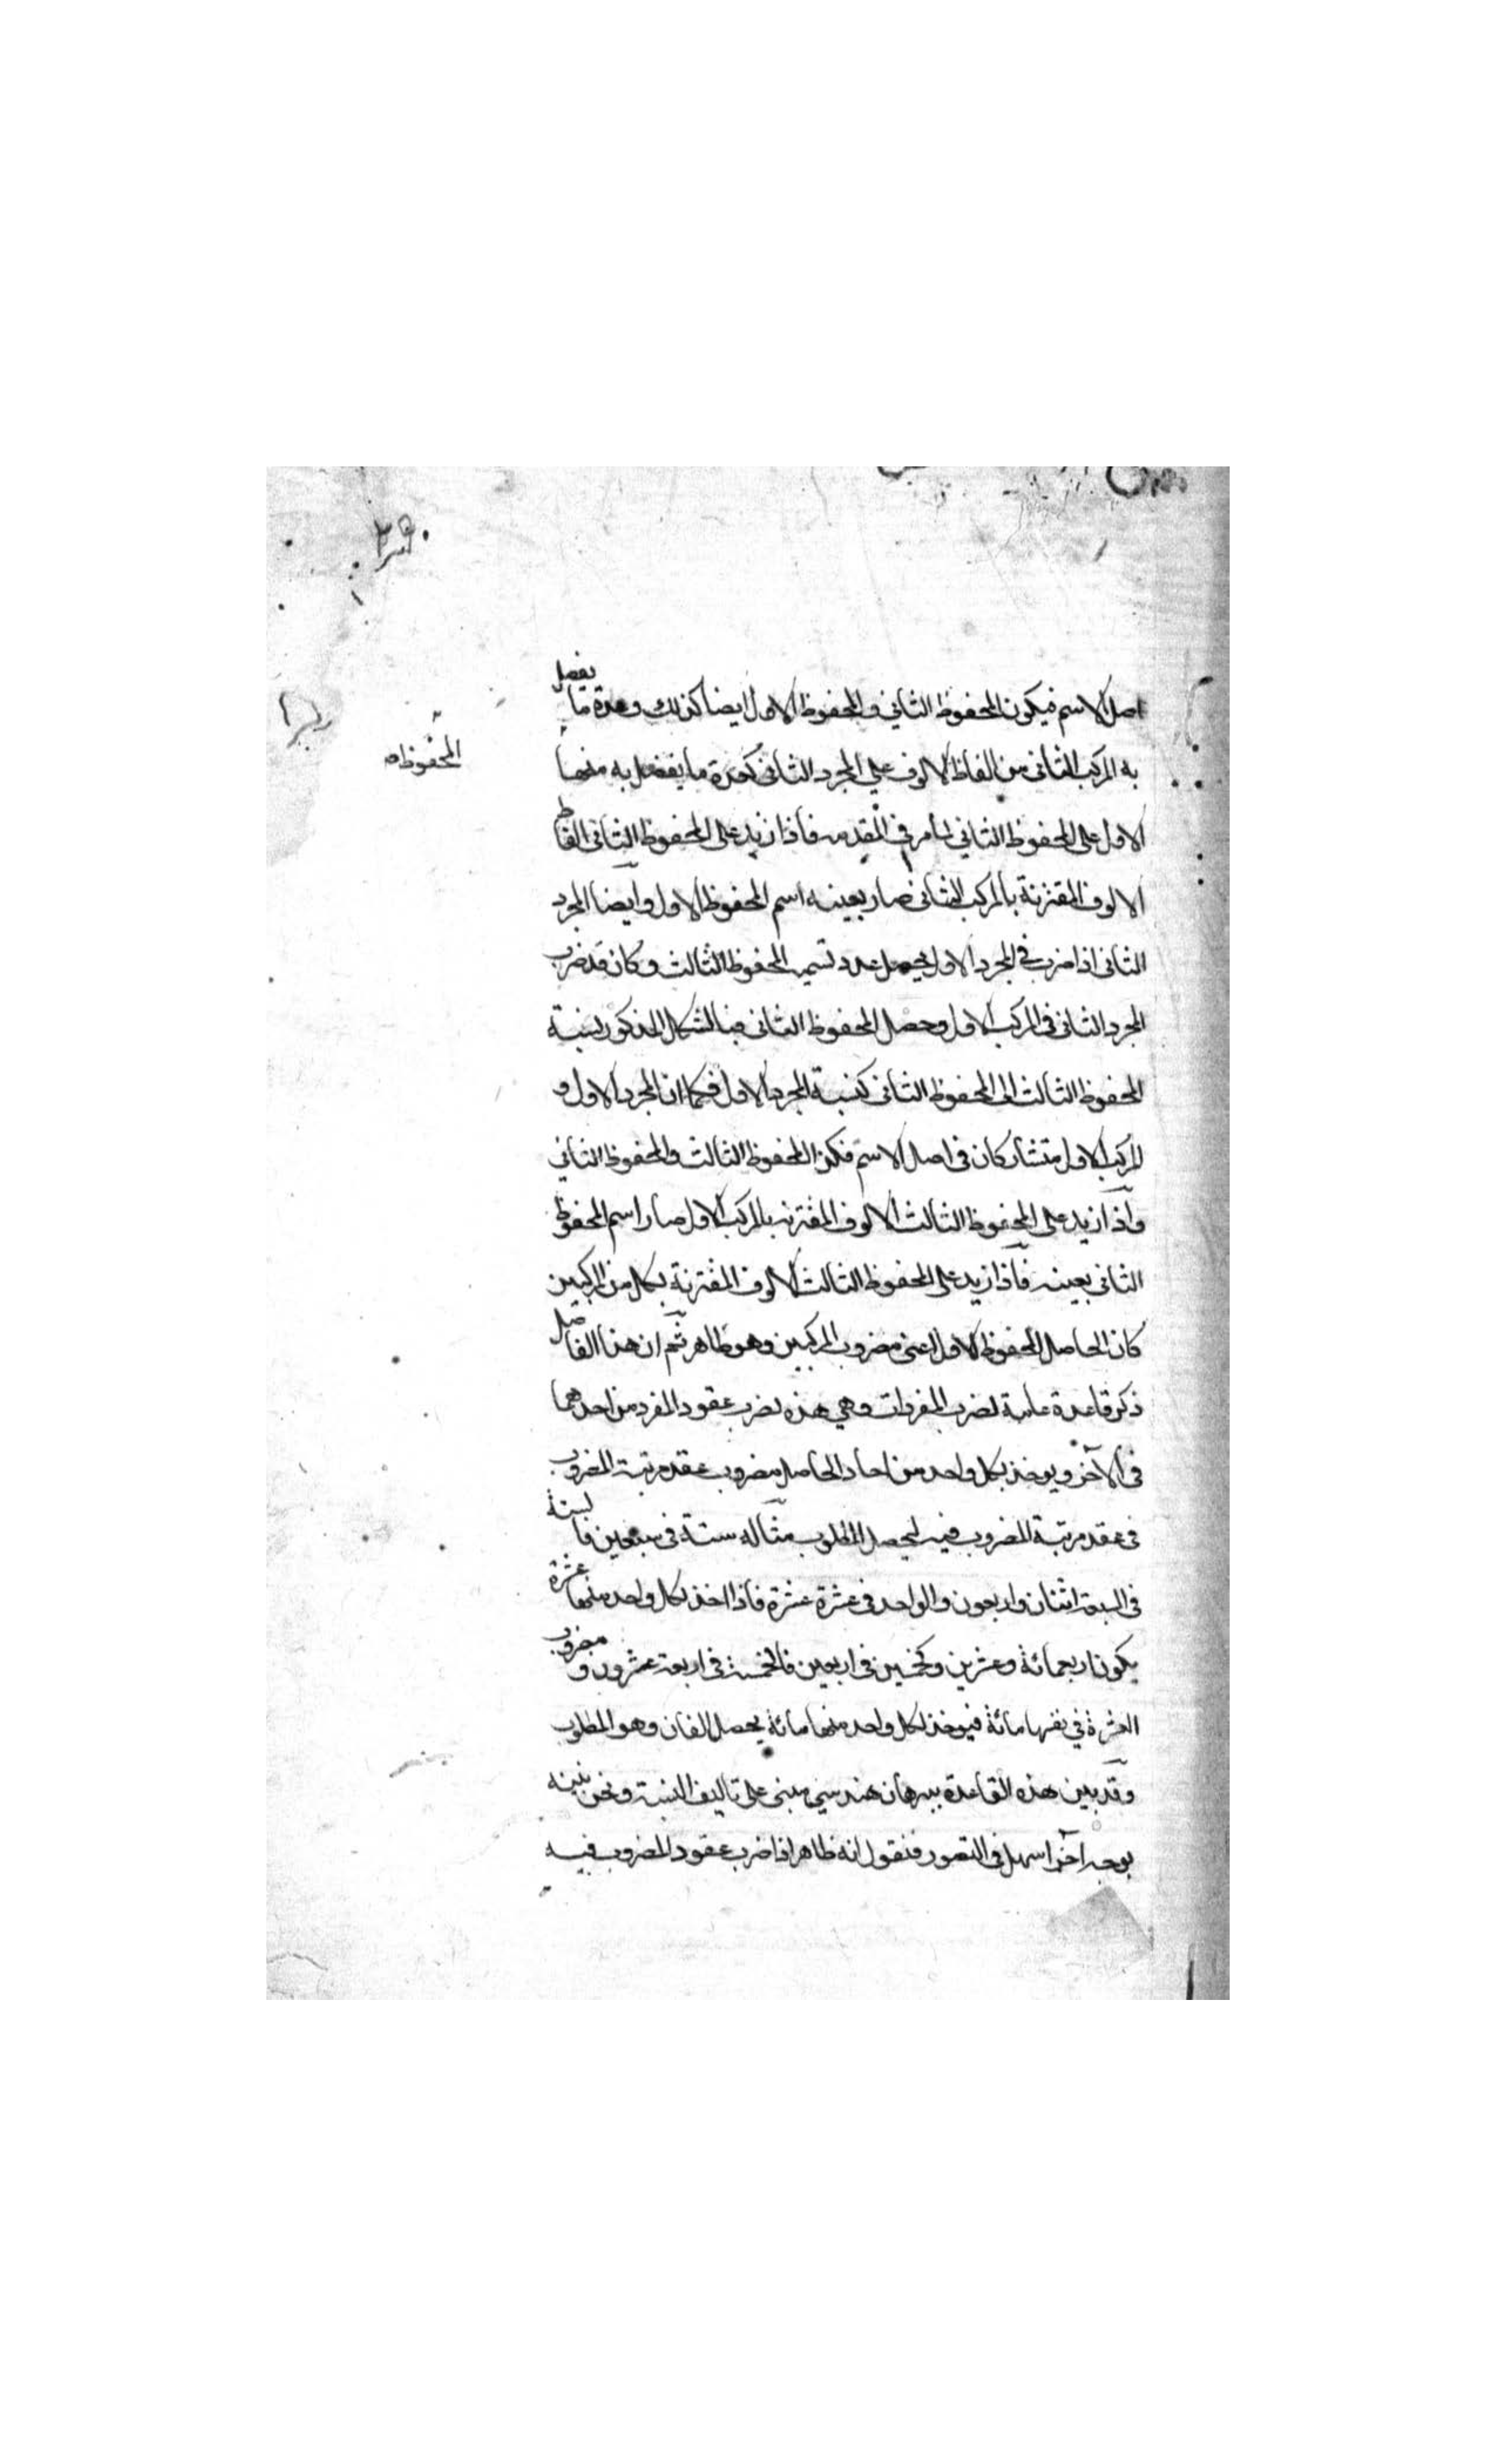 اصل الاسم فيكون المحفوظ الثاني والمحفوظ الاول ايضا كذلك وعدة ما يفضل
به المركب الثاني من الفاظ الالوف علي المجرد الثاني كعدة ما يفضل به منها
المحفوظ
الاول على المحفوظ الثاني لما مر في المقدمه فاذا زيد على المحفوظ الثاني الفاظ
الالوف المقترنة بالمركب الثاني صار بعينه اسم المحفوظ الاول وايضا المجرد
الثاني اذا ضرب في المجرد الاول يحصل عدد نسميه المحفوظ الثالث وكان قد ضرب
المجرد الثاني في المركب الاول وحصل المحفوظ الثاني فبالشكل المذكور نسبة
المحفوظ الثالث الى المحفوظ الثاني كنسبة المجرد الاول فكما ان المجرد الاول و
المركب الاول متشاركان في اصل الاسم فكذا المحفوظ الثالث والمحفوظ الثاني
واذا زيد على المحفوظ الثالث الالوف المقترنه بالمركب الاول صار اسم المحفوظ
الثاني بعينه فاذا زيد على المحفوظ الثالث الالوف المقترنة بكل من المركبين
كان الحاصل المحفوظ الاول اعني مضروب المركبين وهو ظاهر ثم ان هذا الفاضل
ذكر قاعدة عامة لضرب المفردات وهي هذه نضرب عقود المفرد من احدهما
في الآخر ويوخذ بكل واحد من احاد الحاصل مضروب عقد مرتبة المضروب
في عقد مرتبة المضروب فيه ليحصل المطلوب مثاله ستة في سبعين فالستة
في السبعة اثنان واربعون والواحد في عشرة عشرة فاذا اخذ لكل واحد منها عشرة
يكون اربعمائة وعشرين وكخمسين في اربعين فالخمسة في اربعة عشرون و مضروب
العشرة في نفسها مائة فيوخذ لكل واحد منها مائة يحصل الفان وهو المطلوب
وقد بين هذه القاعدة ببرهان هندسي مبني على تاليف النسبة ونحن نبينه
بوجه آخر اسهل في التصور فنقول انه ظاهر اذا ضرب عقود المضروب فيه